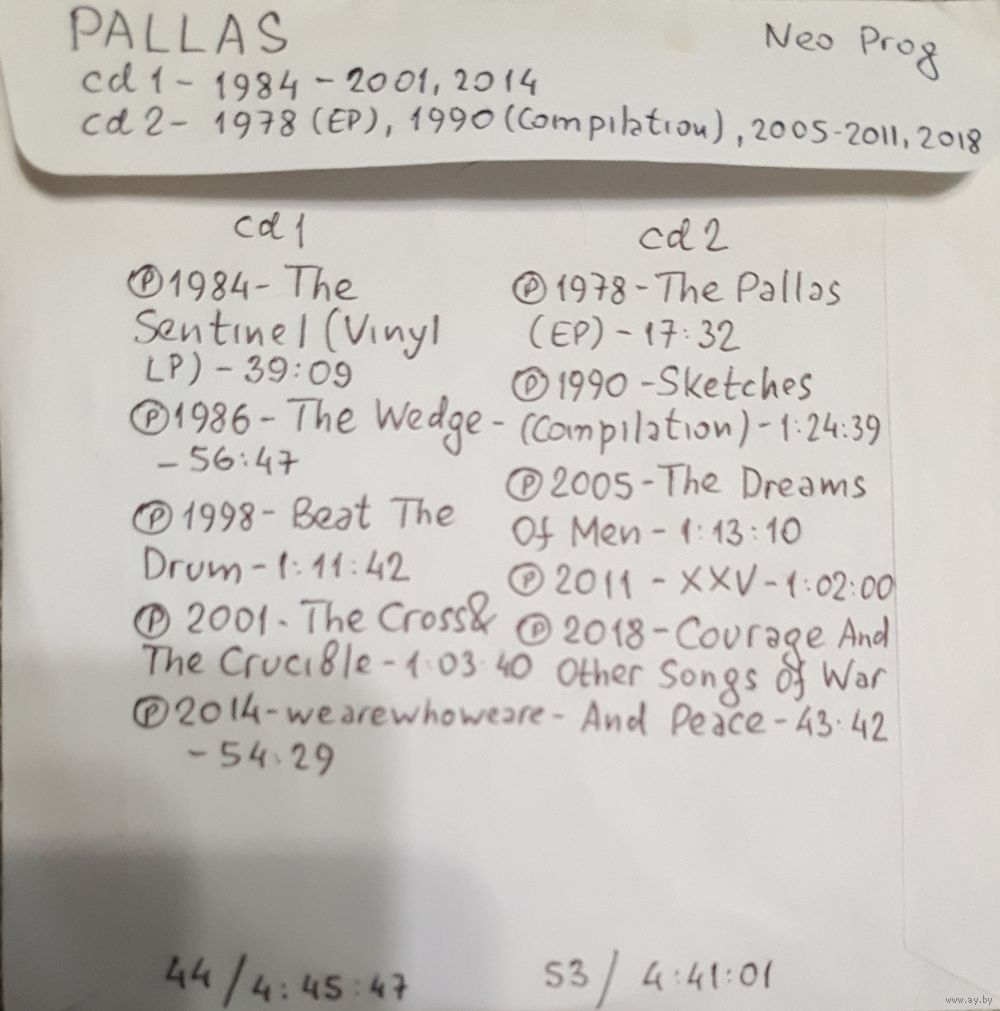 PALLAS
Neo Prog
cd 1 - 1984 - 2001, 2014
cd 2 - 1978 (EP), 1990 (Compilation), 2005-2011, 2018
cd 1
Ⓟ 1984 - The
Sentinel (Vinyl
LP) - 39:09
Ⓟ 1986 - The Wedge -
- 56:47
Ⓟ 1998 - Beat The
Drum - 1:11:42
Ⓟ 2001 - The Cross &
The Crucible - 1:03:40
Ⓟ 2014 - wearewhoweare -
- 54:29
44 / 4:45:47
cd 2
Ⓟ 1978 - The Pallas
(EP) - 17:32
Ⓟ 1990 - Sketches
(Compilation) - 1:24:39
Ⓟ 2005 - The Dreams
Of Men - 1:13:10
Ⓟ 2011 - XXV - 1:02:00
Ⓟ 2018 - Courage And
Other Songs Of War
And Peace - 43:42
53 / 4:41:01
www.ay.by